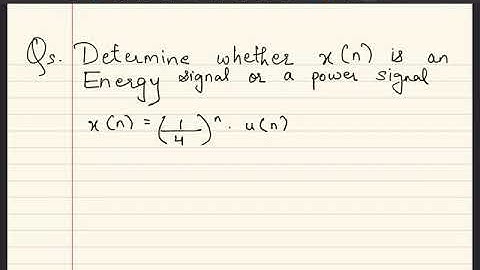 Qs. Determine whether x(n) is an
Energy signal or a power signal
x(n) = (1/4)^n . u(n)